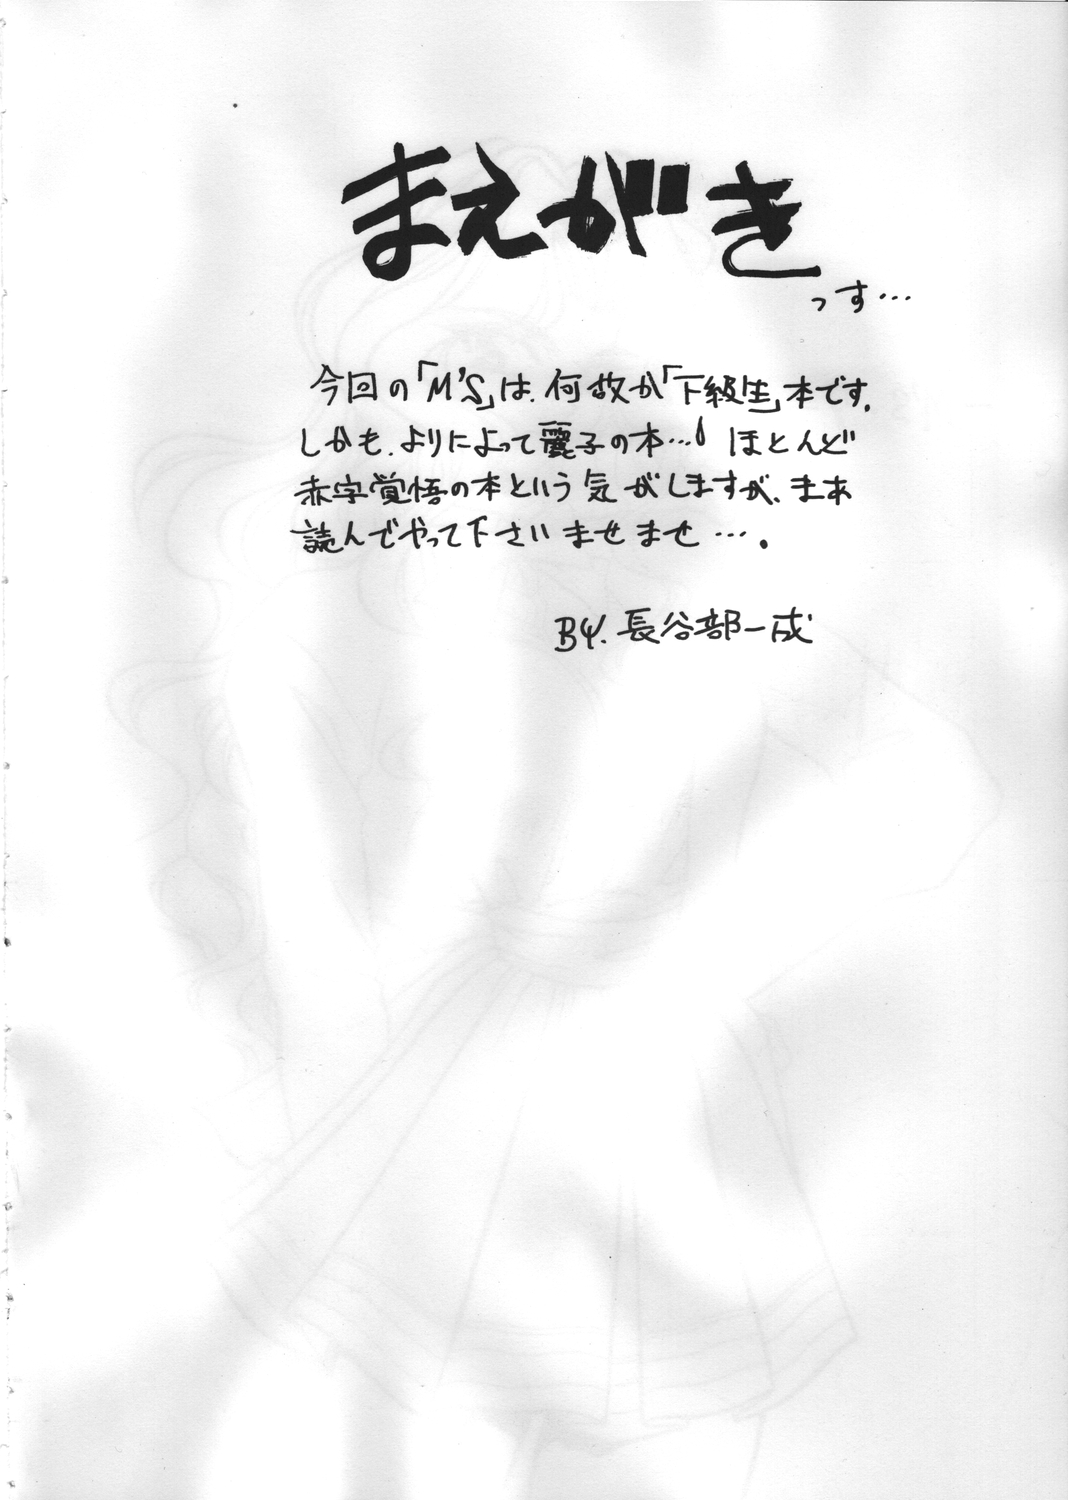 まえがき
っす…
今回の「M'S」は、何故か「下級生」本です。
しかも、よりによって麗子の本…！ほとんど
赤字覚悟の本という気がしますが、まあ
読んでやって下さいませませ…。
BY.長谷部一成